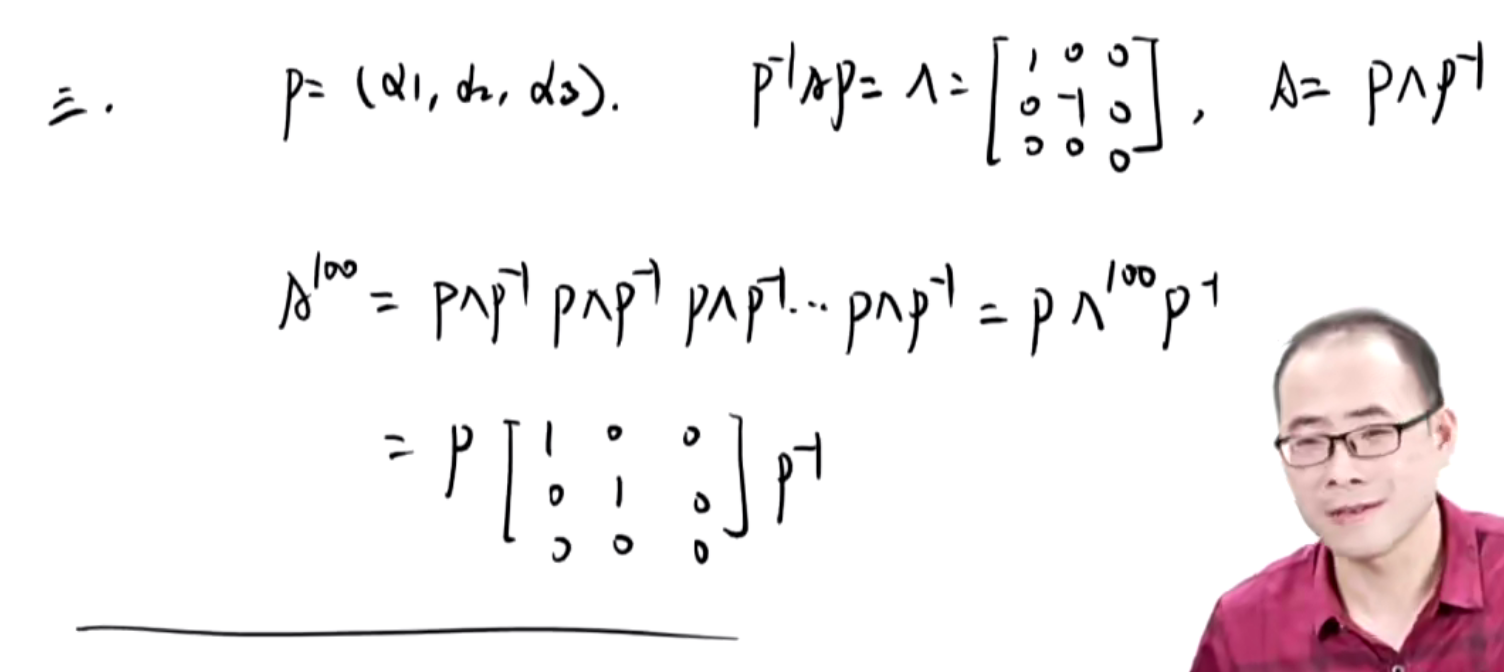 三. P= (α1, α2, α3). P⁻¹AP= Λ= [1 0 0; 0 -1 0; 0 0 0], A= PΛP⁻¹
A¹⁰⁰ = PΛP⁻¹ PΛP⁻¹ PΛP⁻¹... PΛP⁻¹ = PΛ¹⁰⁰P⁻¹
= P [1 0 0; 0 1 0; 0 0 0] P⁻¹